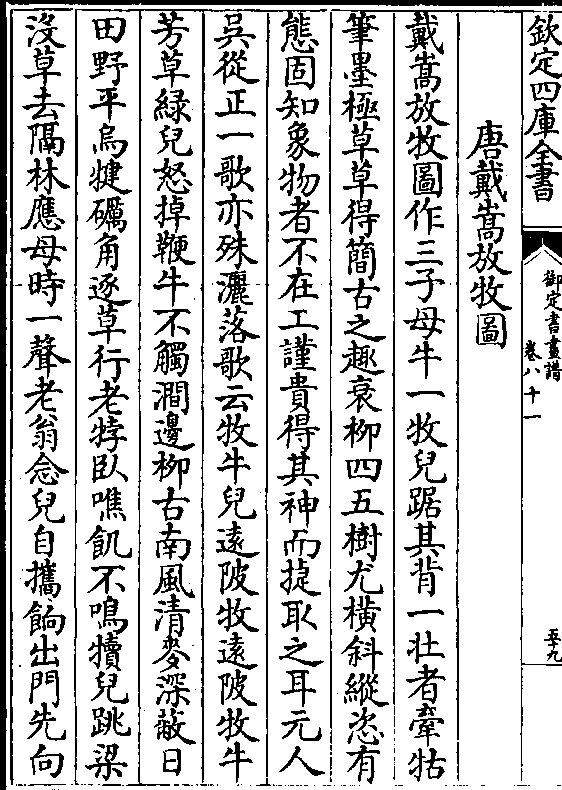 欽定四庫全書
御定書畫譜
卷八十一
五十九
唐戴嵩放牧圖
戴嵩放牧圖作三子母牛一牧兒踞其背一壯者牽牯
筆墨極草草得簡古之趣衰柳四五樹尤橫斜縱恣有
態固知象物者不在工謹貴得其神而捷取之耳元人
吳從正一歌亦殊灑落歌云牧牛兒遠陂牧遠陂牧牛
芳草綠兒怒掉鞭牛不觸澗邊柳古南風清麥深蔽日
田野平烏犍礪角逐草行老牸臥噍飢不鳴犢兒跳梁
沒草去隔林應母時一聲老翁念兒自攜餉出門先向